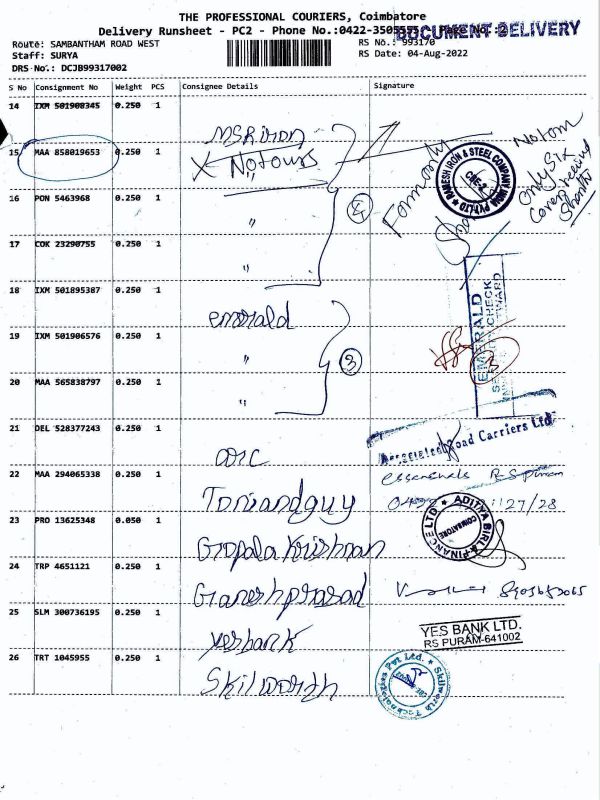 THE PROFESSIONAL COURIERS, Coimbatore
Delivery Runsheet - PC2 - Phone No.:0422-3505575 Page No.:2
DOCUMENT DELIVERY
Route: SAMBANTHAM ROAD WEST RS No.: 993170
Staff: SURYA RS Date: 04-Aug-2022
DRS No.: DCJB99317002
S No Consignment No Weight PCS Consignee Details Signature
14 IXM 501908345 0.250 1
15 MAA 858019653 0.250 1
16 PON 5463968 0.250 1
17 COK 23290755 0.250 1
18 IXM 501895387 0.250 1
emerald
19 IXM 501906576 0.250 1
3
20 MAA 565838797 0.250 1
EMERALD
RAMESH IRON & STEEL COMPANY INDIA PVT LTD
CBE-2
only six
21 DEL 528377243 0.250 1
arc
Associated Road Carriers Ltd
22 MAA 294065338 0.250 1
essensuals RS puram
Toniandguy
23 PRO 13625348 0.050 1
ADITYA BIRLA FINANCE LTD
COIMBATORE
Gopala Krishnan
24 TRP 4651121 0.250 1
Ganesh prasad
25 SLM 300736195 0.250 1
yesbank
YES BANK LTD.
RS PURAM-641002
26 TRT 1045955 0.250 1
Skilworth
Skilworth Technologies Pvt Ltd.